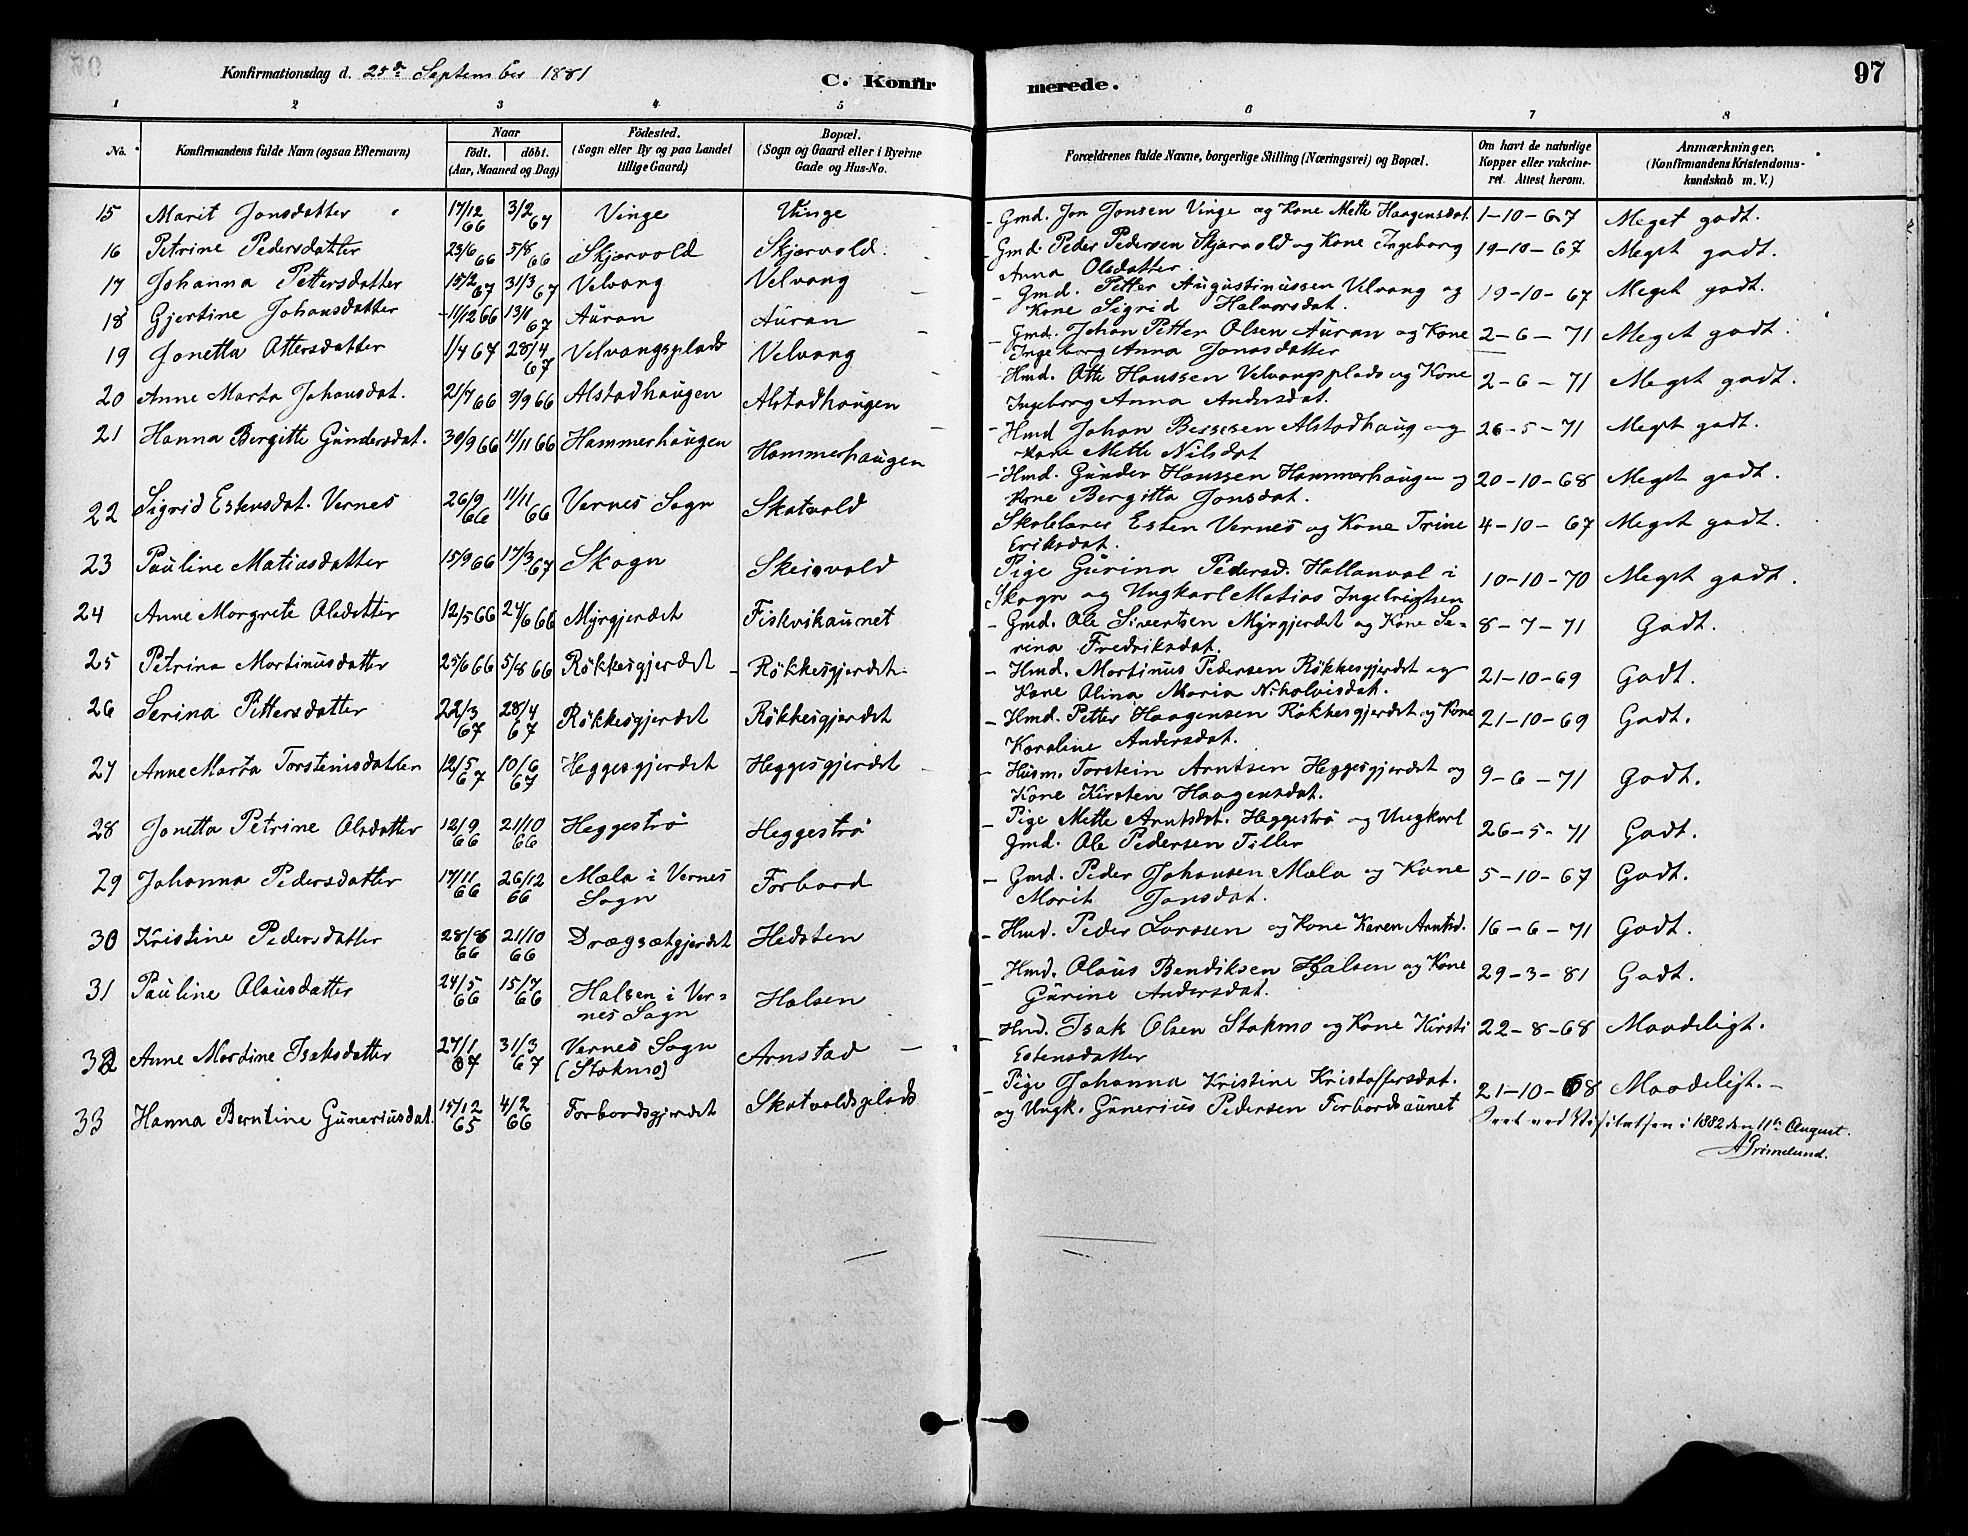 Konfirmationsdag d. 25de September 1881
C. Konfirmerede.
97
1 2 3 4 5 6 7 8
No. Konfirmandens fulde Navn (ogsaa Efternavn) Naar født. døbt. (Aar, Maaned og Dag) Fødested. (Sogn eller By og paa Landet tillige Gaard) Bopæl. (Sogn og Gaard eller i Byerne Gade og Hus-No. Forældrenes fulde Navne, borgerlige Stilling (Næringsvei) og Bopæl. Om havt de naturlige Kopper eller vakcineret. Attest herom. Anmærkninger. (Konfirmandens Kristendomskundskab m. V.)
15 Marit Jonsdatter 17/12 66 3/2 67 Vinge Vinge - Gmd. Jon Jonsen Vinge og Kone Mette Haagensdat. 1-10-67 Meget godt.
16 Petrine Pedersdatter 23/6 66 5/8 66 Skjervold Skjervold - Gmd. Peder Pedersen Skjervold og Kone Ingeborg Anna Olsdatter. 19-10-67 Meget godt.
17 Johanna Pettersdatter 15/2 67 31/3 67 Velvang Velvang - Gmd. Petter Augustinussen Velvang og Kone Sigrid Halvorsdat. 19-10-67 Meget godt.
18 Gjertine Johansdatter 11/12 66 13/1 67 Auran Auran - Gmd. Johan Petter Olsen Auran og Kone Ingeborg Anna Jonasdatter 2-6-71 Meget godt.
19 Jonetta Ottersdatter 1/4 67 28/4 67 Velvangsplads Velvang - Hmd. Otte Hanssen Velvangsplads og Kone Ingeborg Anna Andersdat. 2-6-71 Meget godt.
20 Anne Marta Johansdat. 21/7 66 9/9 66 Alstadhaugen Alstadhaugen - Hmd Johan Bessesen Alstadhaug og Kone Mette Nilsdat 26-5-71 Meget godt.
21 Hanna Bergitte Gundersdat. 30/9 66 11/11 66 Hammerhaugen Hammerhaugen - Hmd. Gunder Hanssen Hammerhaugen og Kone Bergitta Jonsdat. 20-10-68 Meget godt.
22 Sigrid Estensdat. Vernes 26/9 66 11/11 66 Vernes Sogn Skatvold Skolelærer Esten Vernes og Kone Trine Eriksdat. 4-10-67 Meget godt.
23 Pauline Matiasdatter 15/9 66 17/3 67 Skogn Skeisvold Pige Gurina Pedersd. Hallanval i Skogn og Ungkarl Matias Ingebrigtsen 10-10-70 Meget godt.
24 Anne Margrete Olsdatter 12/5 66 24/6 66 Myrgjerdet Fiskvikaunet - Gmd. Ole Sivertsen Myrgjerdet og Kone Serina Fredriksdat. 8-7-71 Godt.
25 Petrina Mortinusdatter 25/6 66 5/8 66 Røkkesgjerdet Røkkesgjerdet - Hmd. Mortinus Pedersen Røkkesgjerdet og Kone Olina Maria Nikolaisdat. 21-10-69 Godt.
26 Serina Pettersdatter 22/3 67 28/4 67 Røkkesgjerdet Røkkesgjerdet - Hmd. Petter Haagensen Røkkesgjerdet og Kone Karoline Andersdat. 21-10-69 Godt.
27 Anne Marta Torstensdatter 12/5 67 10/6 67 Heggesgjerdet Heggesgjerdet - Husm. Torstein Arntsen Heggesgjerdet og Kone Kirsten Haagensdat. 9-6-71 Godt.
28 Jonetta Petrine Olsdatter 12/9 66 21/10 66 Heggestrø Heggestrø - Pige Mette Arntsdat. Heggestrø og Ungkarl Gmd. Ole Pedersen Tiller 26-5-71 Godt.
29 Johanna Pedersdatter 17/11 66 26/12 66 Mæla i Vernes Sogn Forbord - Gmd. Peder Johansen Mæla og Kone Marit Jonsdat. 5-10-67 Godt.
30 Kristine Pedersdatter 28/8 66 21/10 66 Drægsætgjerdet Hedsten - Hmd. Peder Larssen og Kone Karen Arntsd. 16-6-71 Godt.
31 Pauline Olausdatter 24/5 66 15/7 66 Halsen i Vernes Sogn Halsen - Hmd. Olaus Bendiksen Hjalsen og Kone Gurine Andersdat. 29-3-81 Godt.
32 Anne Mordine Isaksdatter 27/1 67 31/3 67 Vernes Sogn (Stokmo) Arnstad - Hmd. Isak Olsen Stokmo og Kone Kirsti Estensdatter 22-8-68 Maadeligt.
33 Hanna Berntine Guneriusdat. 15/12 65 4/2 66 Forbordsgjerdet Skatvoldsplads - Pige Johanna Kristine Kristoffersdat. og Ungk. Gunerius Pedersen Forbordsaunet 21-10-68 Maadeligt. -
Seet ved Visitatsen i 1882 den 11te August.
A Grimelund.